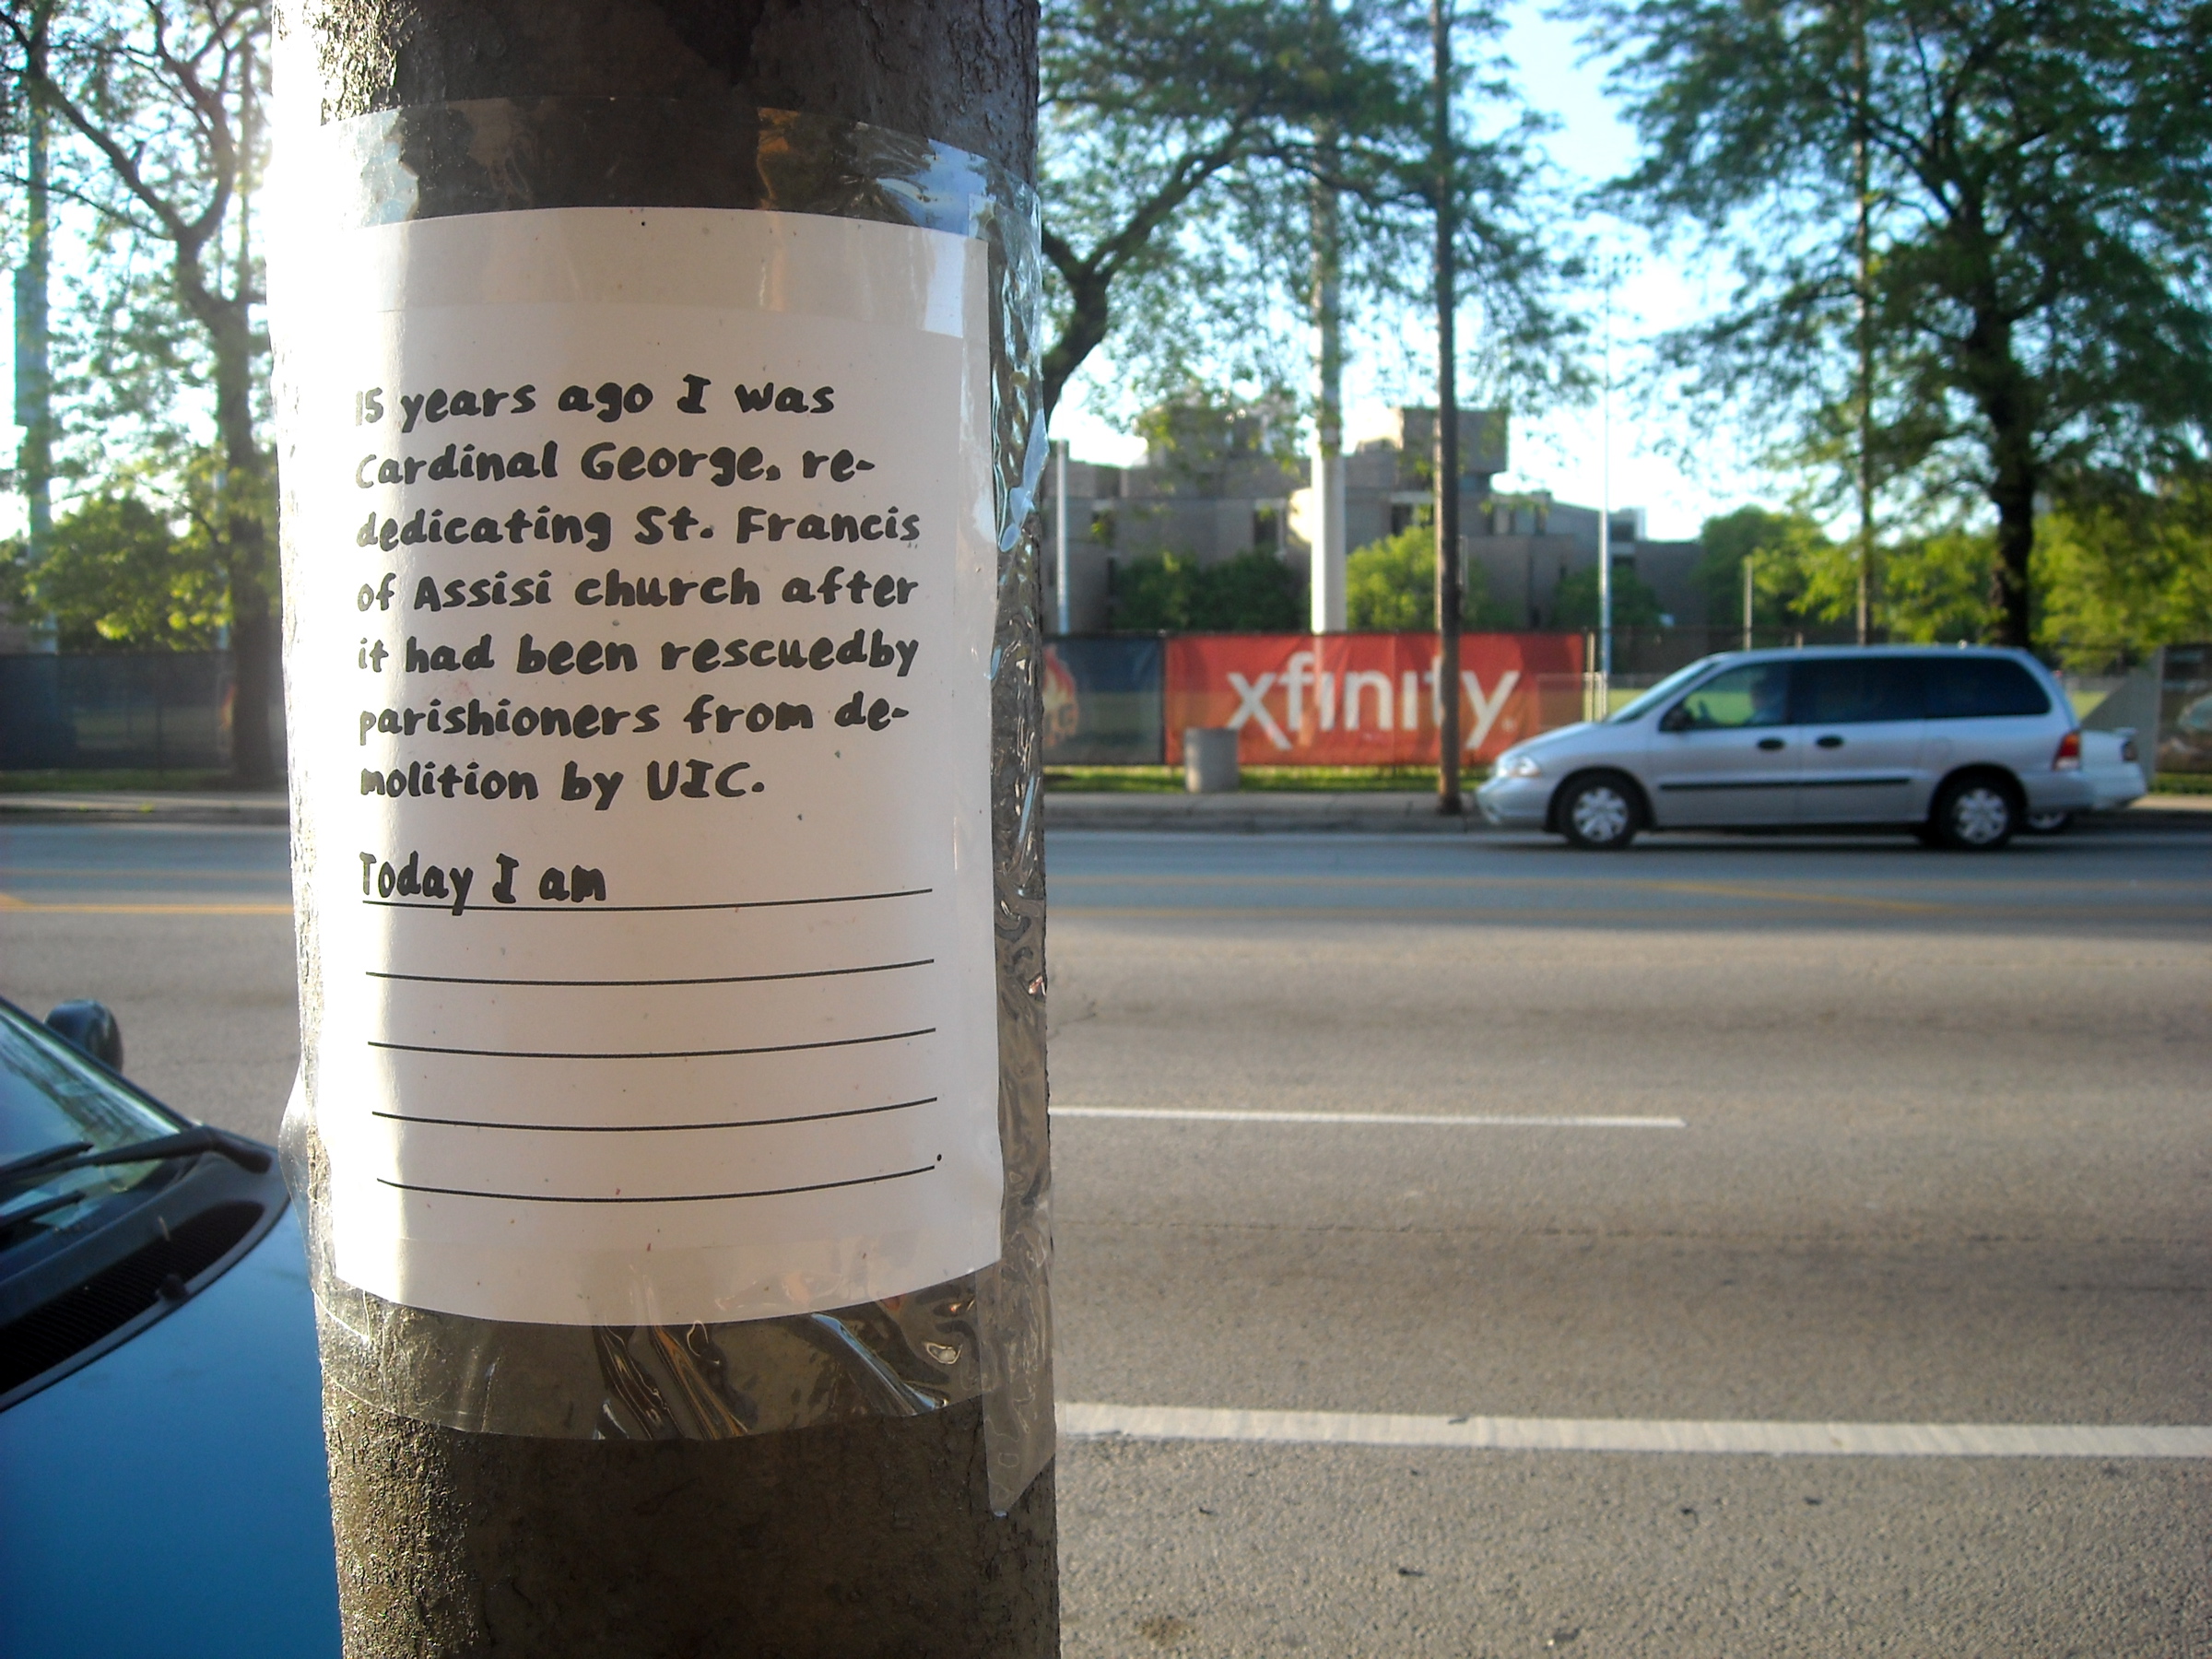 15 years ago I was
Cardinal George, re-
dedicating St. Francis
of Assisi church after
it had been rescuedby
parishioners from de-
molition by UIC.
Today I am
xfinity